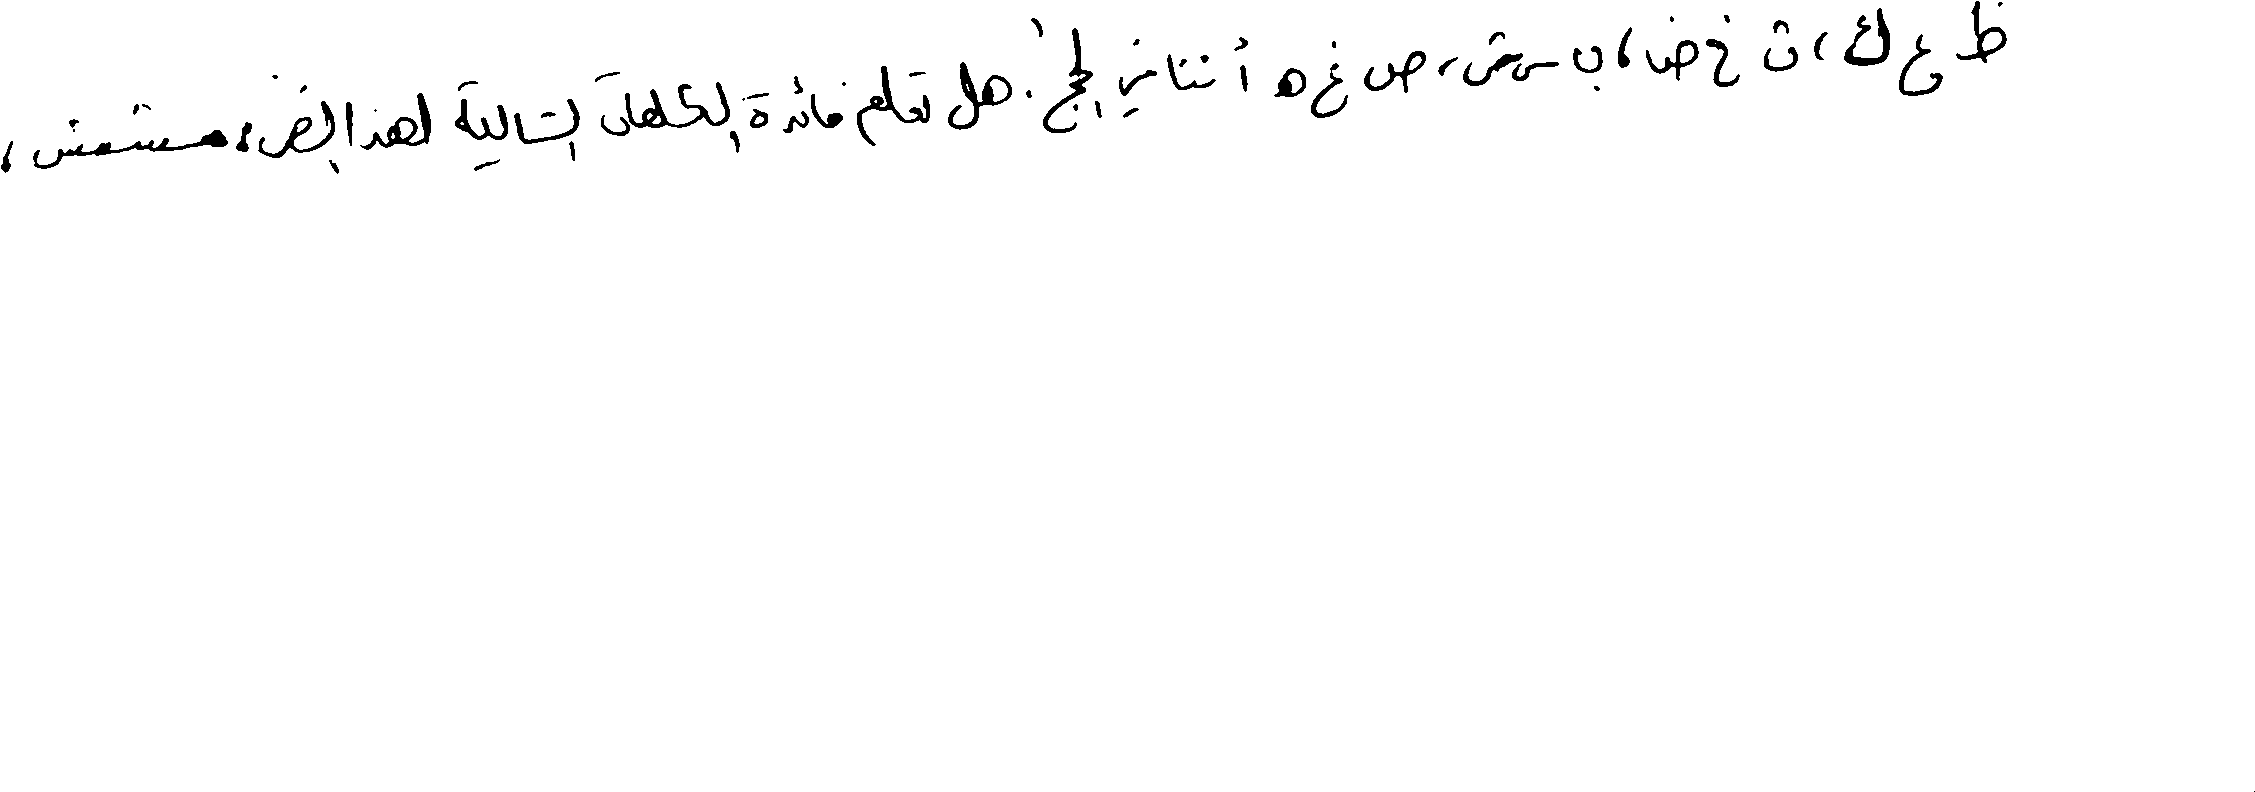 ظ ع ك، ث خ ض، ب س ش، ص غ ه أثنناء الحج. هل تعلم فائدة الكلمات التالية لهذا النص، مستمش،